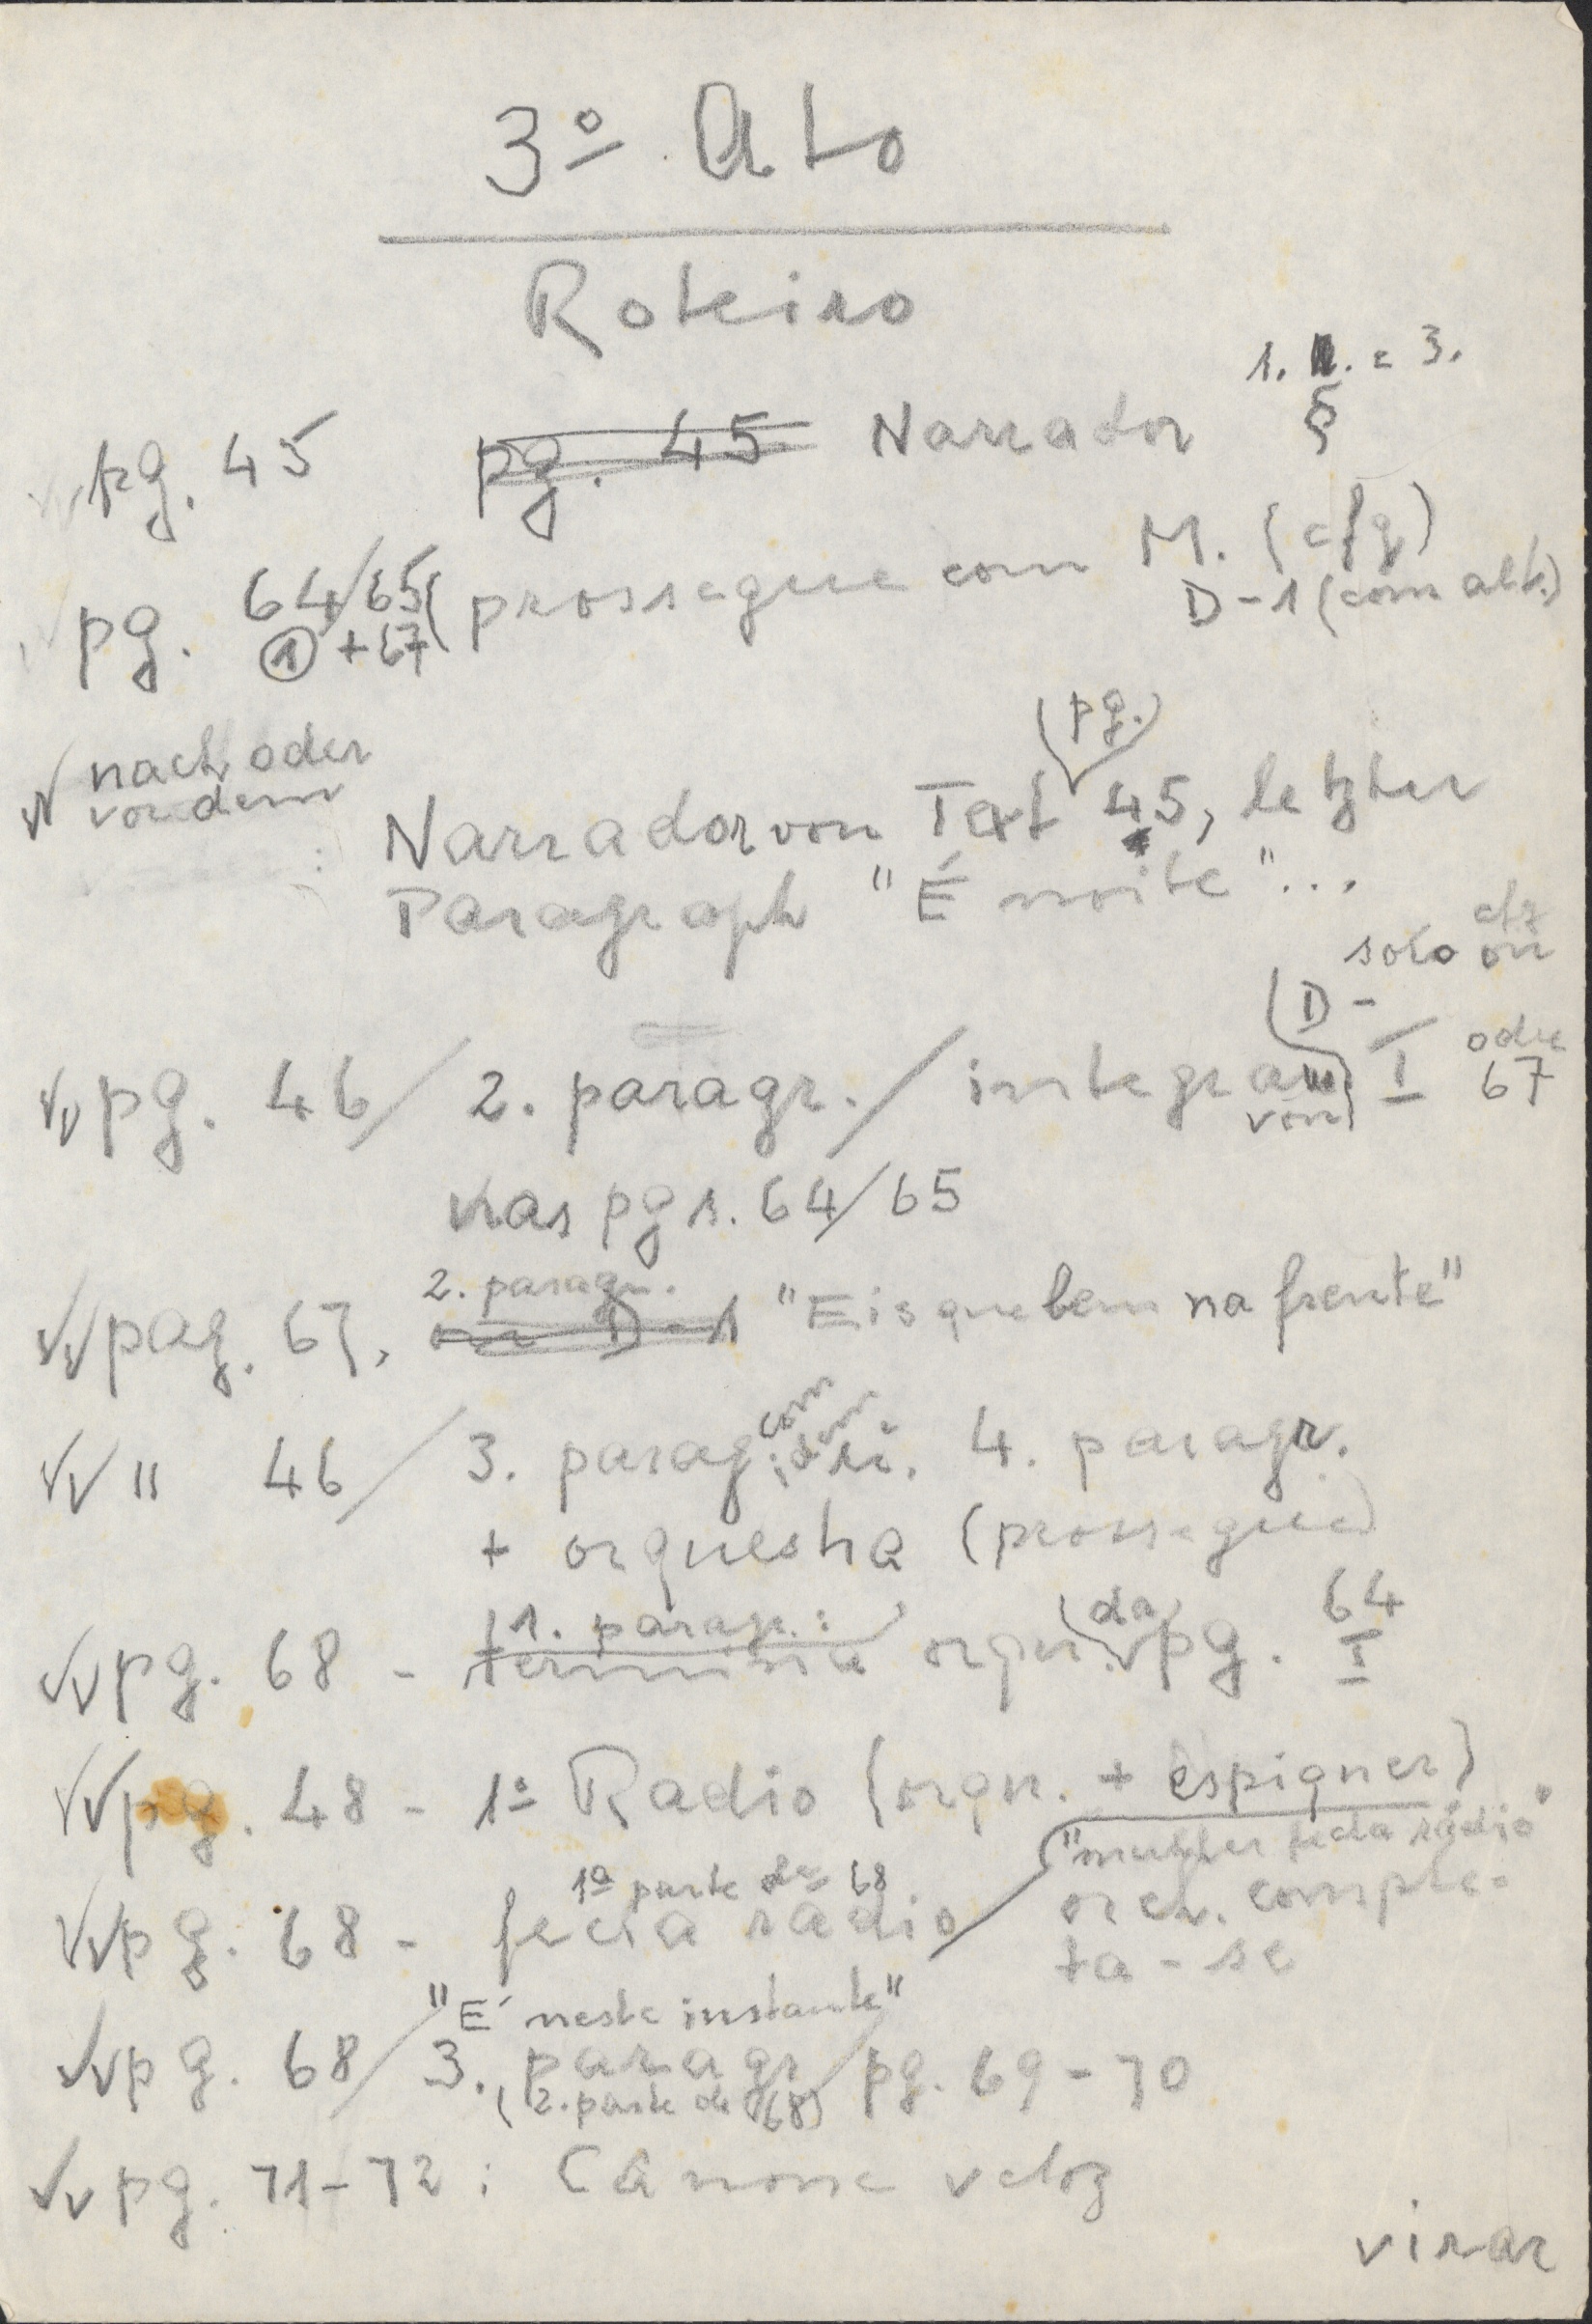 3º Ato
Roteiro
1. e 3.
§
pg. 45 pg. 45 Narrador
pg. 64/65 prossegue com M. (cfg)
① + 67 D-1 (com alt.)
(pg.)
nach oder
vor dem
Narrador von Text 45, letzter
Paragraph "É noite"...
solo
(D-
pg. 46/ 2. paragr./ integrar I oder
von 67
nas pgs. 64/65
2. paragr.
pag. 67, ou D-1 "Eis que bem na frente"
com
" 46/ 3. parag. 4. paragr.
+ orquestra (prossegue)
1. paragr.: (da) 64
pg. 68 - termina orqu. pg. I
pg. 48 - 1º Radio (orqu. + espiquer)
"mulher fecha rádio"
1ª parte de 68
pg. 68 - fecha rádio orch. comple-
ta-se
"É neste instante"
pg. 68/ 3. paragr/ pg. 69-70
(2. parte de 68)
pg. 71-72: Cânone veloz
virar